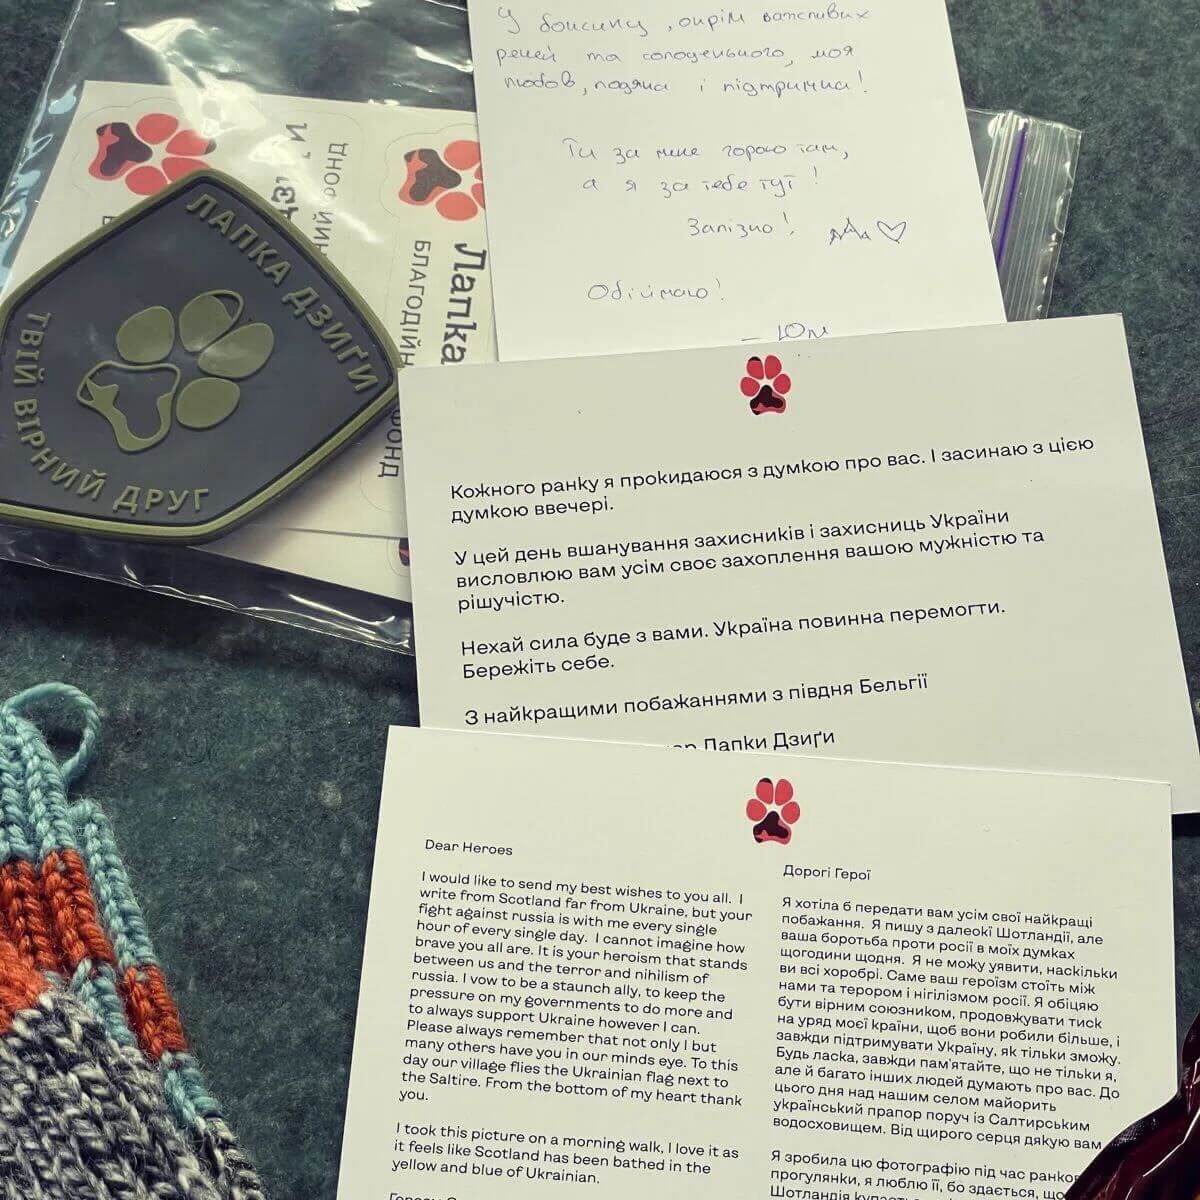 У боксику, окрім важливих
речей та солоденького, моя
любов, подяка і підтримка!
Ти за мене горою там,
а я за тебе тут!
Залізно!
Обіймаю!
ЛАПКА ДЗИҐИ
ТВІЙ ВІРНИЙ ДРУГ
Лапка
БЛАГОДІЙН
ФОНД
Кожного ранку я прокидаюся з думкою про вас. І засинаю з цією
думкою ввечері.
У цей день вшанування захисників і захисниць України
висловлюю вам усім своє захоплення вашою мужністю та
рішучістю.
Нехай сила буде з вами. Україна повинна перемогти.
Бережіть себе.
З найкращими побажаннями з півдня Бельгії
Лапки Дзиґи
Dear Heroes
I would like to send my best wishes to you all. I
write from Scotland far from Ukraine, but your
fight against russia is with me every single
hour of every single day. I cannot imagine how
brave you all are. It is your heroism that stands
between us and the terror and nihilism of
russia. I vow to be a staunch ally, to keep the
pressure on my governments to do more and
to always support Ukraine however I can.
Please always remember that not only I but
many others have you in our minds eye. To this
day our village flies the Ukrainian flag next to
the Saltire. From the bottom of my heart thank
you.
I took this picture on a morning walk, I love it as
it feels like Scotland has been bathed in the
yellow and blue of Ukrainian.
Дорогі Герої
Я хотіла б передати вам усім свої найкращі
побажання. Я пишу з далеокї Шотландії, але
ваша боротьба проти росії в моїх думках
щогодини щодня. Я не можу уявити, наскільки
ви всі хоробрі. Саме ваш героїзм стоїть між
нами та терором і нігілізмом росії. Я обіцяю
бути вірним союзником, продовжувати тиск
на уряд моєї країни, щоб вони робили більше, і
завжди підтримувати Україну, як тільки зможу.
Будь ласка, завжди пам'ятайте, що не тільки я,
але й багато інших людей думають про вас. До
цього дня над нашим селом майорить
український прапор поруч із Салтирським
водосховищем. Від щирого серця дякую вам
Я зробила цю фотографію під час ранков
прогулянки, я люблю її, бо здається, що
Шотландія